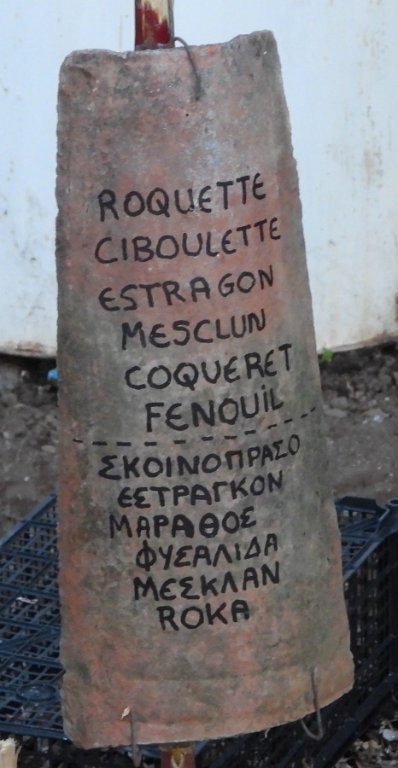 ROQUETTE
CIBOULETTE
ESTRAGON
MESCLUN
COQUERET
FENOUiL
ΣΚΟΙΝΟΠΡΑΣΟ
ΕΣΤΡΑΓΚΟΝ
ΜΑΡΑΘΟΣ
ΦΥΣΑΛΙΔΑ
ΜΕΣΚΛΑΝ
ROKA